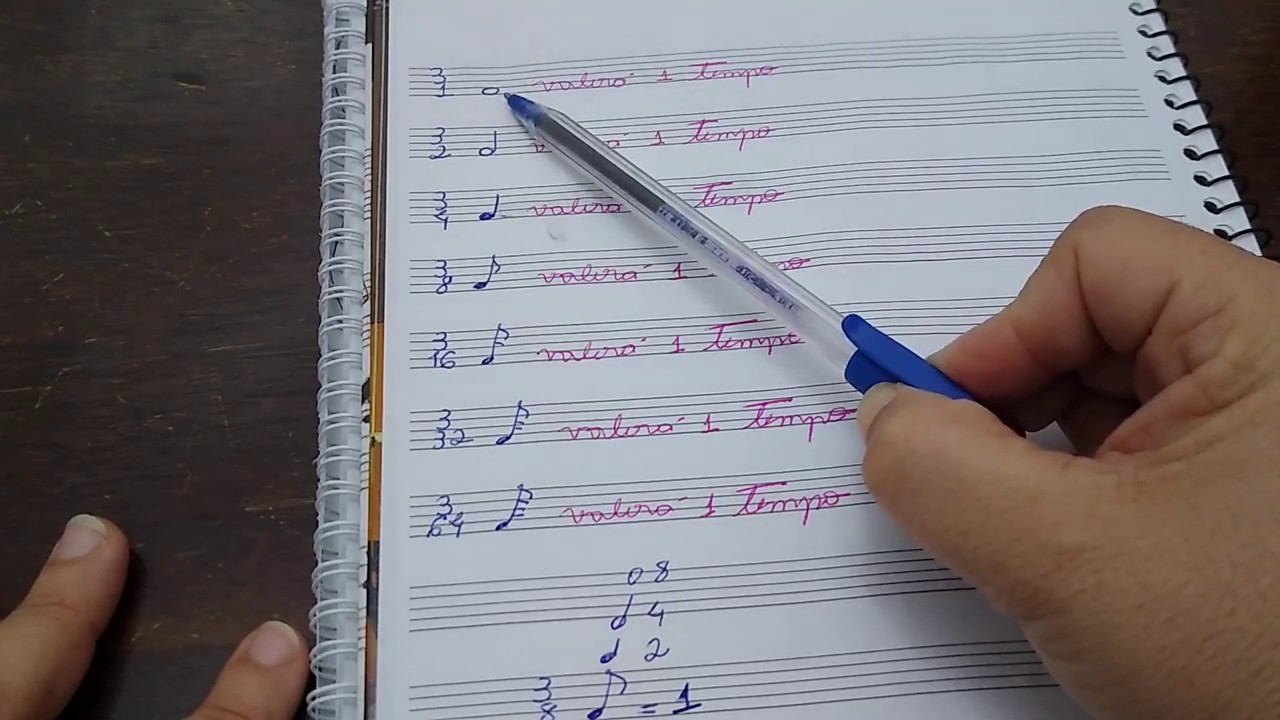 3
1 valerá 1 tempo
3
2 1 tempo
3
4 valerá tempo
3
8 valerá 1
3
16 valerá 1 tempo
3
32 valerá 1 tempo
3
64 valerá 1 tempo
8
4
2
3
8 = 1